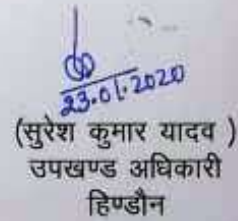 23.01.2020
(सुरेश कुमार यादव )
उपखण्ड अधिकारी
हिण्डौन